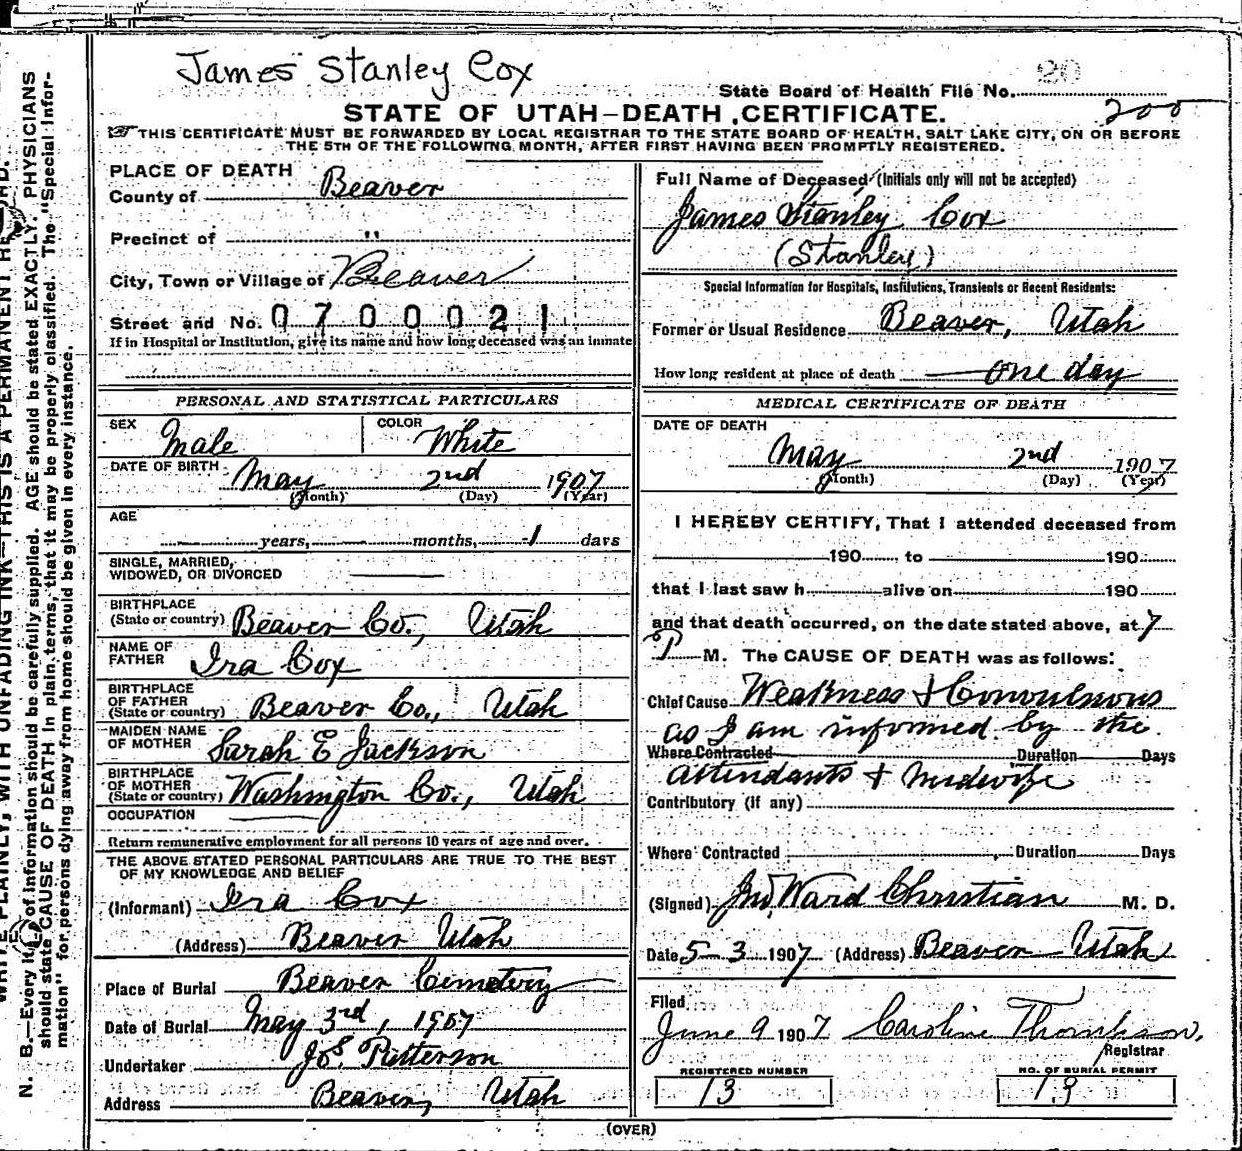 James Stanley Cox
20
State Board of Health File No.
200
STATE OF UTAH—DEATH CERTIFICATE.
THIS CERTIFICATE MUST BE FORWARDED BY LOCAL REGISTRAR TO THE STATE BOARD OF HEALTH, SALT LAKE CITY, ON OR BEFORE
THE 5TH OF THE FOLLOWING MONTH, AFTER FIRST HAVING BEEN PROMPTLY REGISTERED.
PLACE OF DEATH
County of Beaver
Precinct of "
City, Town or Village of Beaver
Street and No. 0700021
If in Hospital or Institution, give its name and how long deceased was an inmate
PERSONAL AND STATISTICAL PARTICULARS
SEX Male COLOR White
DATE OF BIRTH May 2nd 1907
(Month) (Day) (Year)
AGE
years, months, 1 days
SINGLE, MARRIED,
WIDOWED, OR DIVORCED
BIRTHPLACE
(State or country) Beaver Co., Utah
NAME OF
FATHER Ira Cox
BIRTHPLACE
OF FATHER
(State or country) Beaver Co., Utah
MAIDEN NAME
OF MOTHER Sarah E Jackson
BIRTHPLACE
OF MOTHER
(State or country) Washington Co., Utah
OCCUPATION
Return remunerative employment for all persons 10 years of age and over.
THE ABOVE STATED PERSONAL PARTICULARS ARE TRUE TO THE BEST
OF MY KNOWLEDGE AND BELIEF
(Informant) Ira Cox
(Address) Beaver Utah
Place of Burial Beaver Cemetery
Date of Burial May 3rd, 1907
Undertaker Jos. Patterson
Address Beaver, Utah
Full Name of Deceased (Initials only will not be accepted)
James Stanley Cox
(Stanley)
Special Information for Hospitals, Institutions, Transients or Recent Residents:
Former or Usual Residence Beaver, Utah
How long resident at place of death one day
MEDICAL CERTIFICATE OF DEATH
DATE OF DEATH
May 2nd 1907
(Month) (Day) (Year)
I HEREBY CERTIFY, That I attended deceased from
190 to 190
that I last saw h alive on 190
and that death occurred, on the date stated above, at 7
P M. The CAUSE OF DEATH was as follows:
Chief Cause Weakness & Convulsions
as I am informed by the
Where Contracted Duration Days
attendants & midwife
Contributory (if any)
Where Contracted Duration Days
(Signed) Jno, Ward Christian M. D.
Date 5-3 1907 (Address) Beaver Utah
Filed
June 9 1907 Caroline Thompson,
Registrar
REGISTERED NUMBER
13
NO. OF BURIAL PERMIT
13
(OVER)
WRITE PLAINLY, WITH UNFADING INK—THIS IS A PERMANENT RECORD.
N. B.—Every item of information should be carefully supplied. AGE should be stated EXACTLY. PHYSICIANS
should state CAUSE OF DEATH in plain terms, that it may be properly classified. The "Special Infor-
mation" for persons dying away from home should be given in every instance.